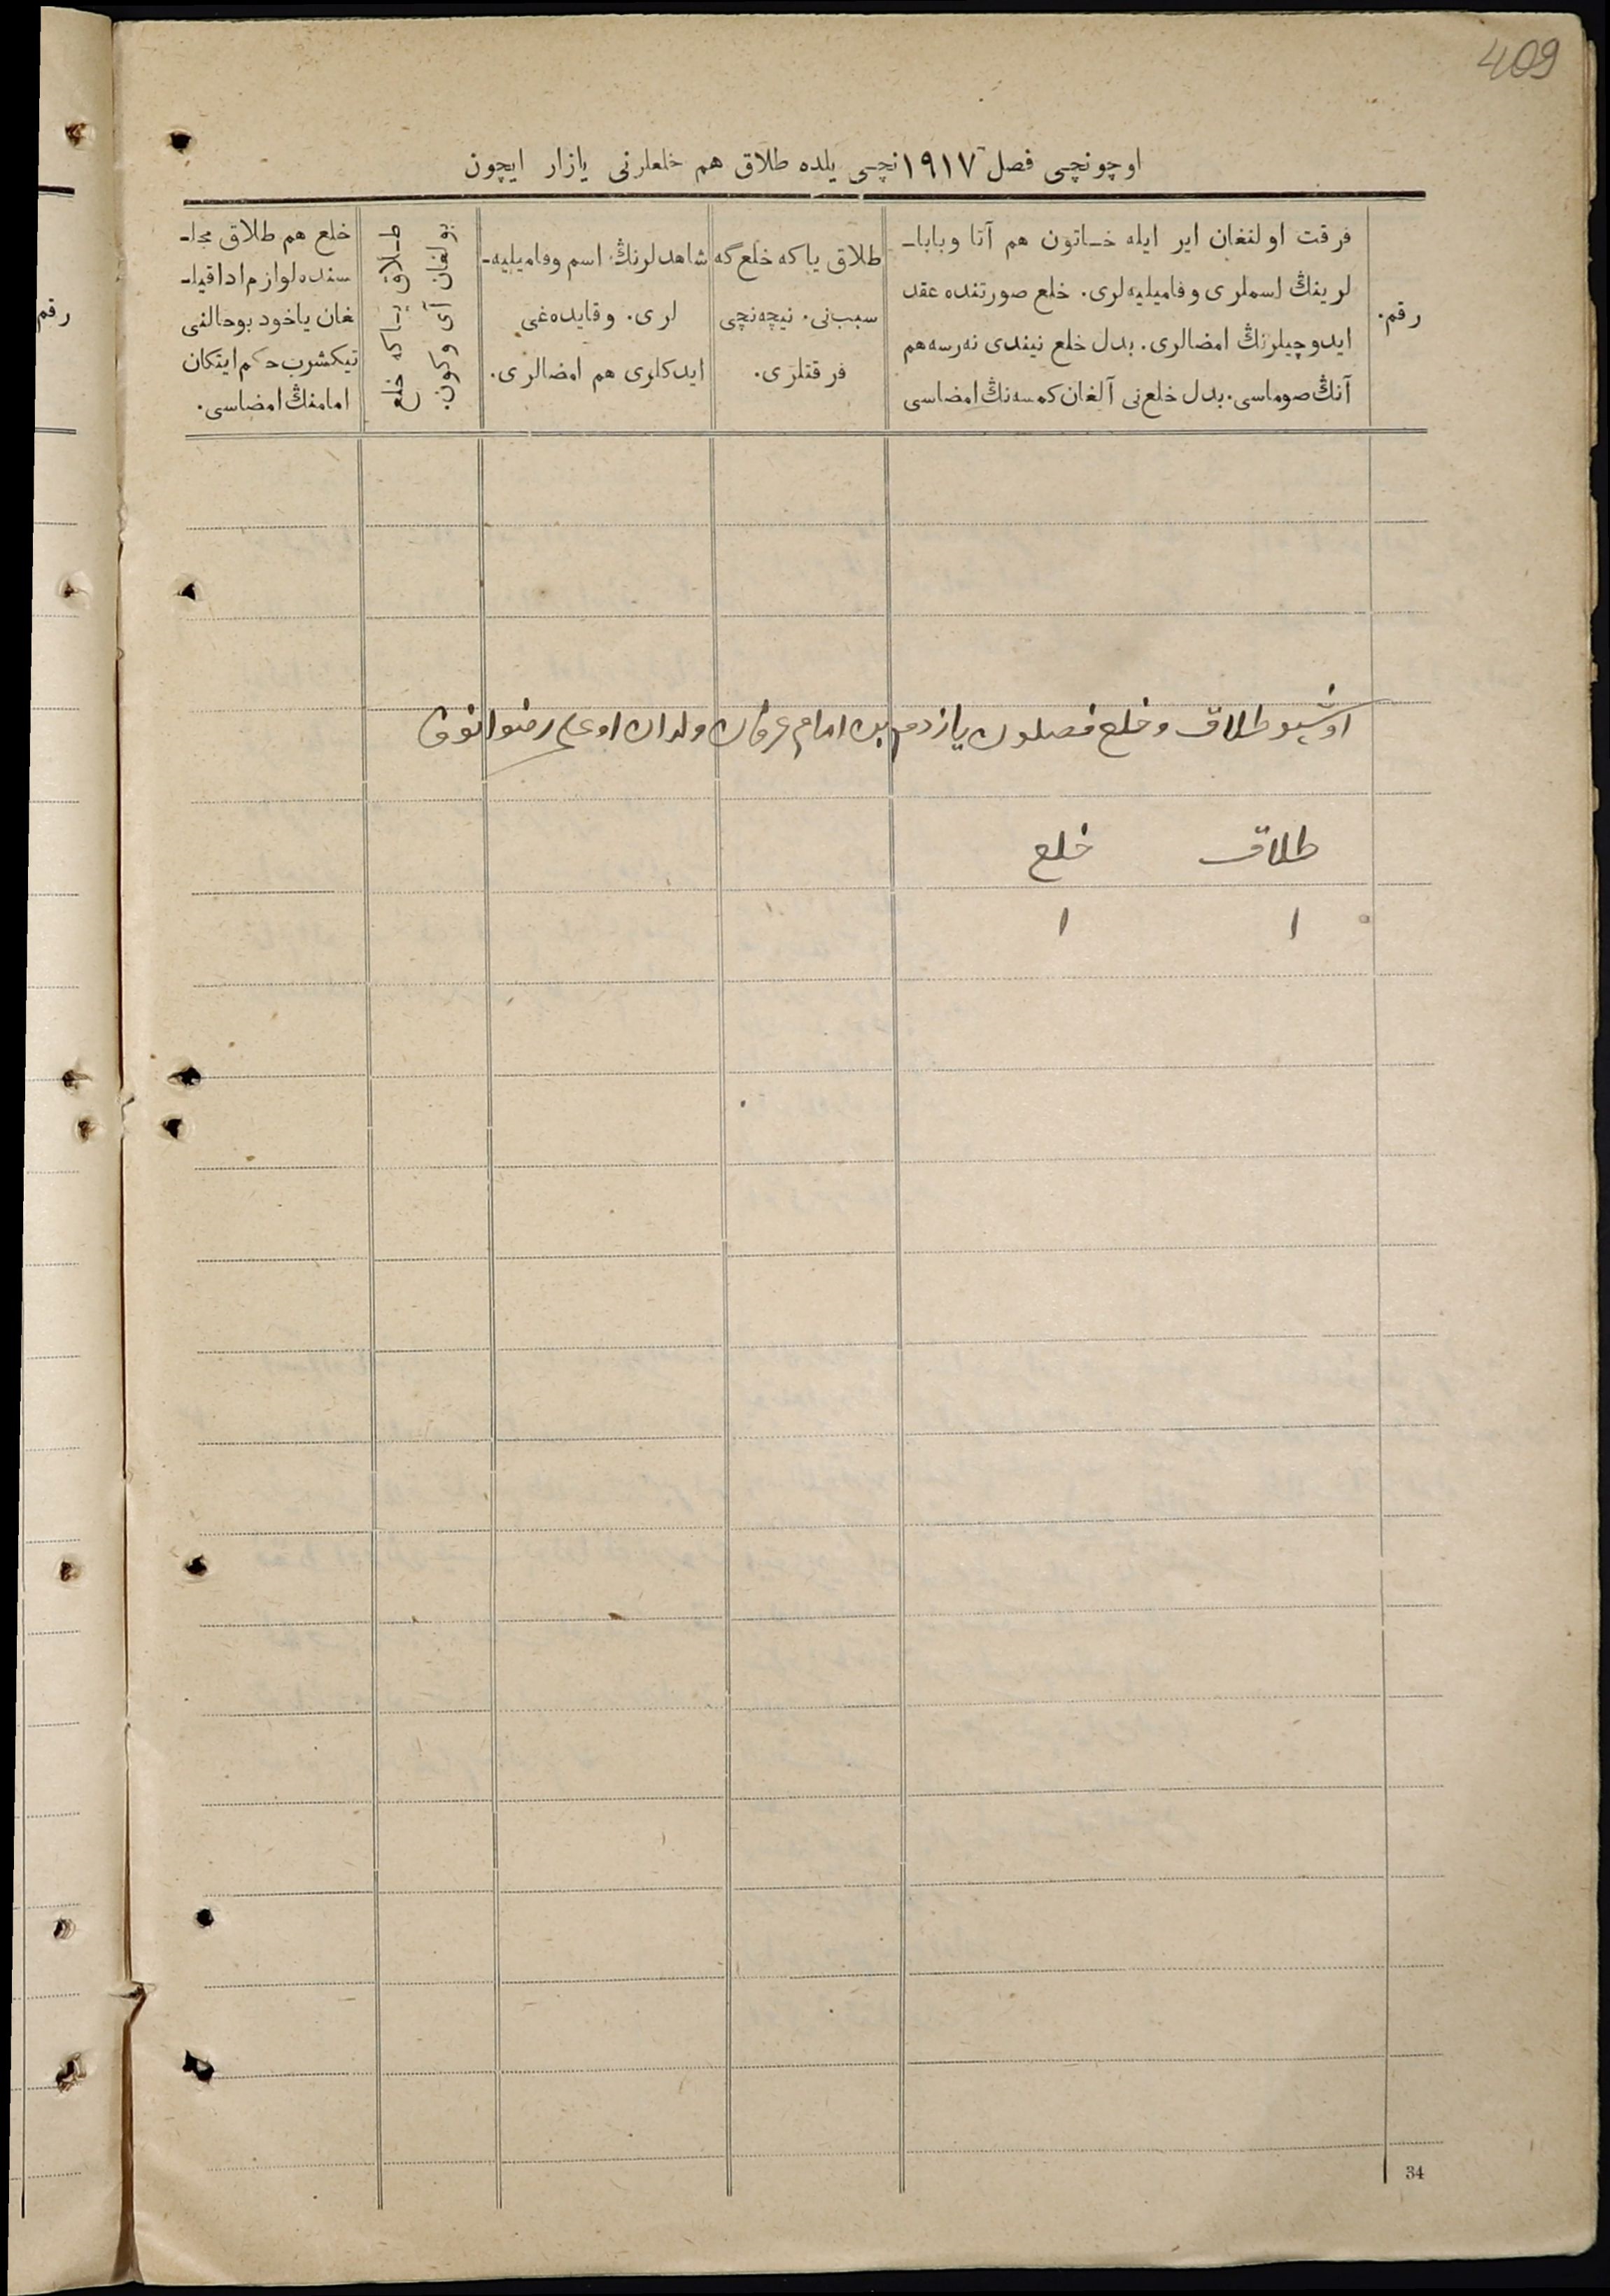 409
اوچونچی فصل ١٩١٧نچی یلده طلاق هم خلعلرنی یازار ایچون
رقم.
فرقت اولنغان ایر ایله خاتون هم آتا وبابا-
لرینڭ اسملری وفامیلیه‌لری. خلع صورتنده عقد
ایدوچیلرنڭ امضالری. بدل خلع نیندی نه‌رسه هم
آنڭ صوماسی. بدل خلع‌نی آلغان کمسه‌نڭ امضاسی
طلاق یاکه خلع‌گه
سبب‌نی. نیچه‌نچی
فرقتلری.
شاهدلرنڭ اسم وفامیلیه-
لری. وقایده‌غی
ایدکلری هم امضالری.
طلاق یاکه خلع
بولغان آی وکون.
خلع هم طلاق مجل-
سنده لوازم ادا قیل-
غان یاخود بوحالنی
تیکشرب حکم ایتکان
امامنڭ امضاسی.
رقم
اوشبو طلاق وخلع فصلون یازدم بن امام عرفان ولدان اوغلی رضوانوف
طلاق خلع
١ ١
34